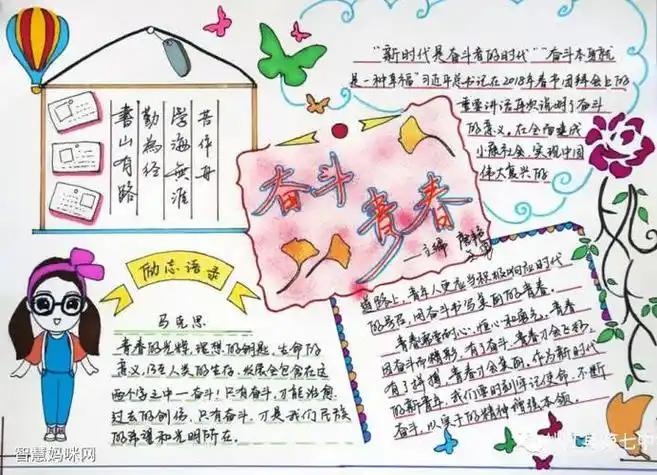 书山有路
勤为经
学海无涯
苦作舟
"新时代是奋斗者的时代""奋斗本身就
是一种幸福"习近平总书记在2018年春节团拜会上的
重要讲话再次说明了奋斗
的意义。在全面建成
小康社会、实现中国
伟大复兴的
奋斗
青春
主编
励志语录
马克思
青春的光辉,理想的钥匙,生命的
意义,乃至人类的生存、发展全包含在这
两个字之中—奋斗!只有奋斗,才能治愈
过去的创伤,只有奋斗,才是我们民族
的希望和光明所在。
道路上,青年人更应当积极响应时代
的号召,用奋斗书写美丽的青春。
青春需要耐心、恒心和勇气。青春
因奋斗而精彩,有了奋斗,青春才会飞彩,
有了拼搏,青春才会美丽。作为新时代
的新青年,我们要时刻牢记使命,不断
奋斗,以实干的精神增强本领。
智慧妈咪网
第七中